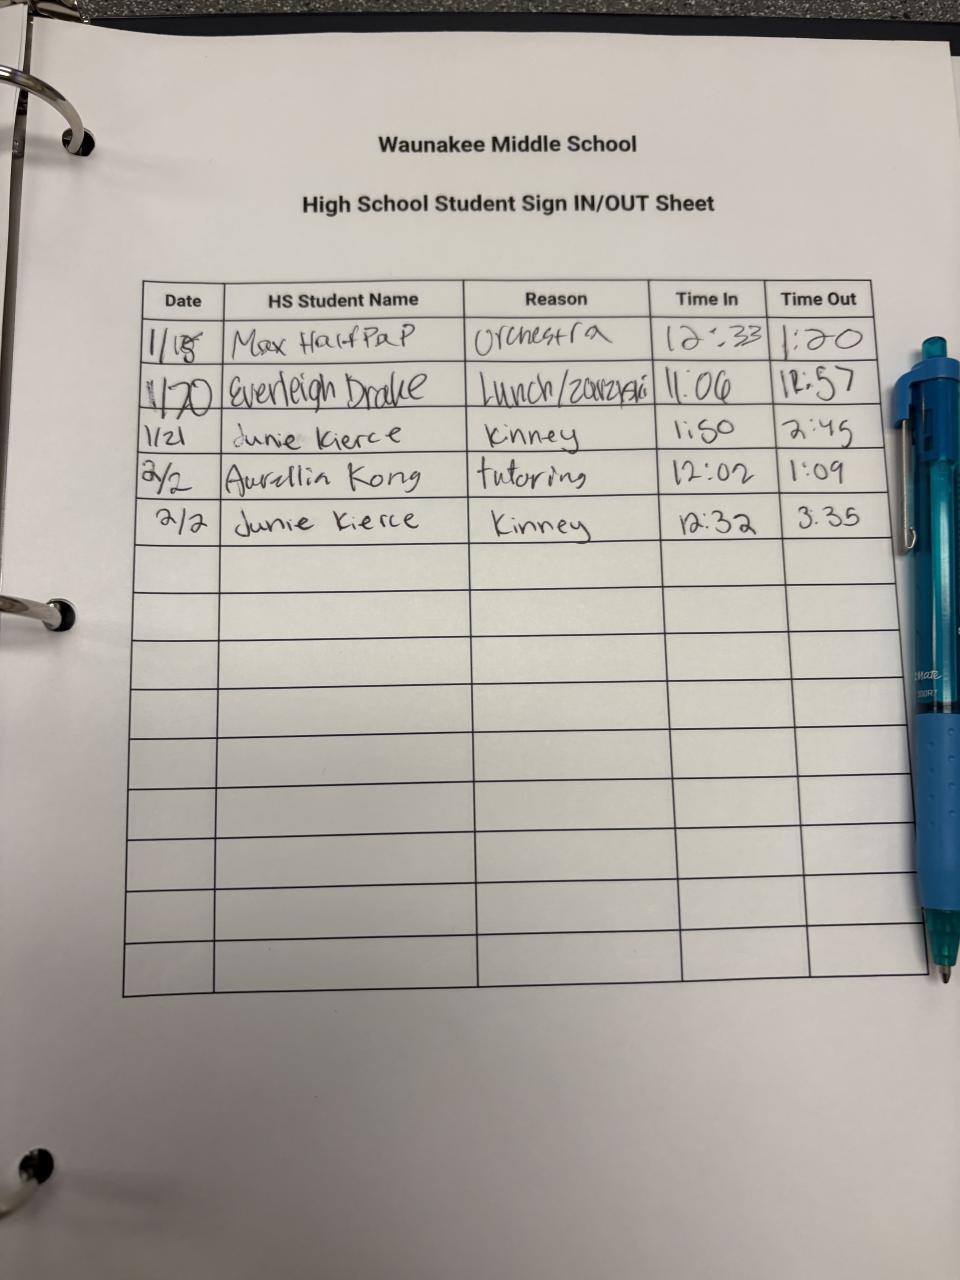 Waunakee Middle School
High School Student Sign IN/OUT Sheet
Date HS Student Name Reason Time In Time Out
1/18 Max Halfpap Orchestra 12:33 1:20
1/20 Everleigh Drake Lunch/ 11:06 12:57
1/21 Junie Kierce Kinney 1:50 2:45
2/2 Aurellia Kong tutoring 12:02 1:09
2/2 Junie Kierce Kinney 12:32 3:35
Mate